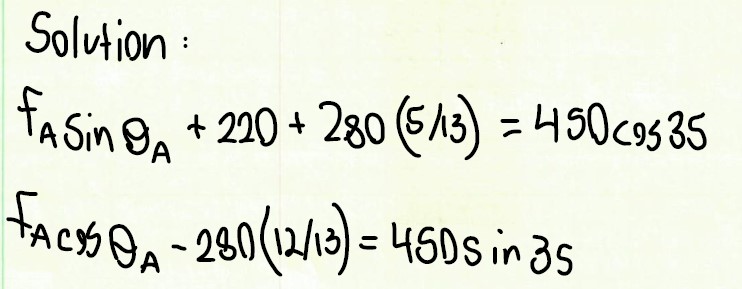 Solution:
fA sin θA + 220 + 280 (5/13) = 450 cos 35
fA cos θA - 280 (12/13) = 450 sin 35